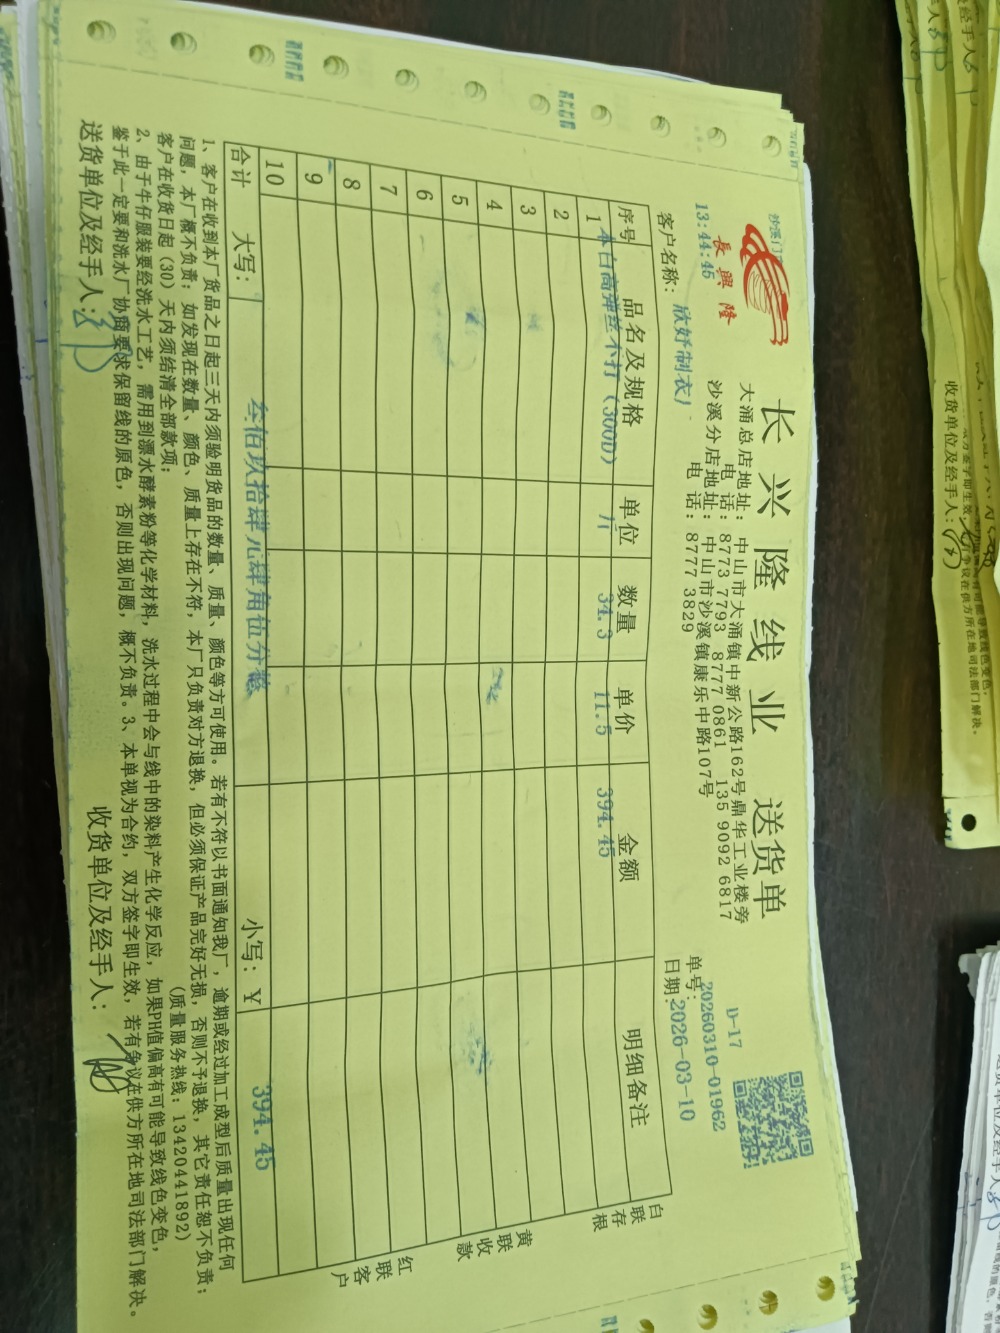 长兴隆线业 送货单
沙溪门
長興隆
13:44:45
大涌总店地址：中山市大涌镇中新公路162号鼎华工业楼旁
电话：8773 7793 8777 0861 135 9092 6817
沙溪分店地址：中山市沙溪镇康乐中路107号
电话：8777 3829
D-17
单号：20260310-01962
日期：2026-03-10
客户名称：欣妤制衣厂
序号 品名及规格 单位 数量 单价 金额 明细备注
1 本白高弹丝不打（300D） 个 34.3 11.5 394.45
2
3
4
5
6
7
8
9
10
合计 大写： 叁佰玖拾肆元肆角伍分整 小写：￥ 394.45
白联存根
黄联收款
红联客户
1、客户在收到本厂货品之日起三天内须验明货品的数量、质量、颜色等方可使用。若有不符以书面通知我厂，逾期或经过加工成型后质量出现任何
问题，本厂概不负责；如发现在数量、颜色、质量上存在不符，本厂只负责对方退换，但必须保证产品完好无损，否则不予退换，其它责任恕不负责；
客户在收货日起（30）天内须结清全部款项； （质量服务热线：13420441892）
2、由于牛仔服装要经洗水工艺，需用到漂水酵素粉等化学材料，洗水过程中会与线中的染料产生化学反应，如果PH值偏高有可能导致线色变色，
鉴于此一定要和洗水厂协商要求保留线的原色，否则出现问题，概不负责。3、本单视为合约，双方签字即生效，若有争议在供方所在地司法部门解决。
送货单位及经手人： 收货单位及经手人：
收货单位及经手人：